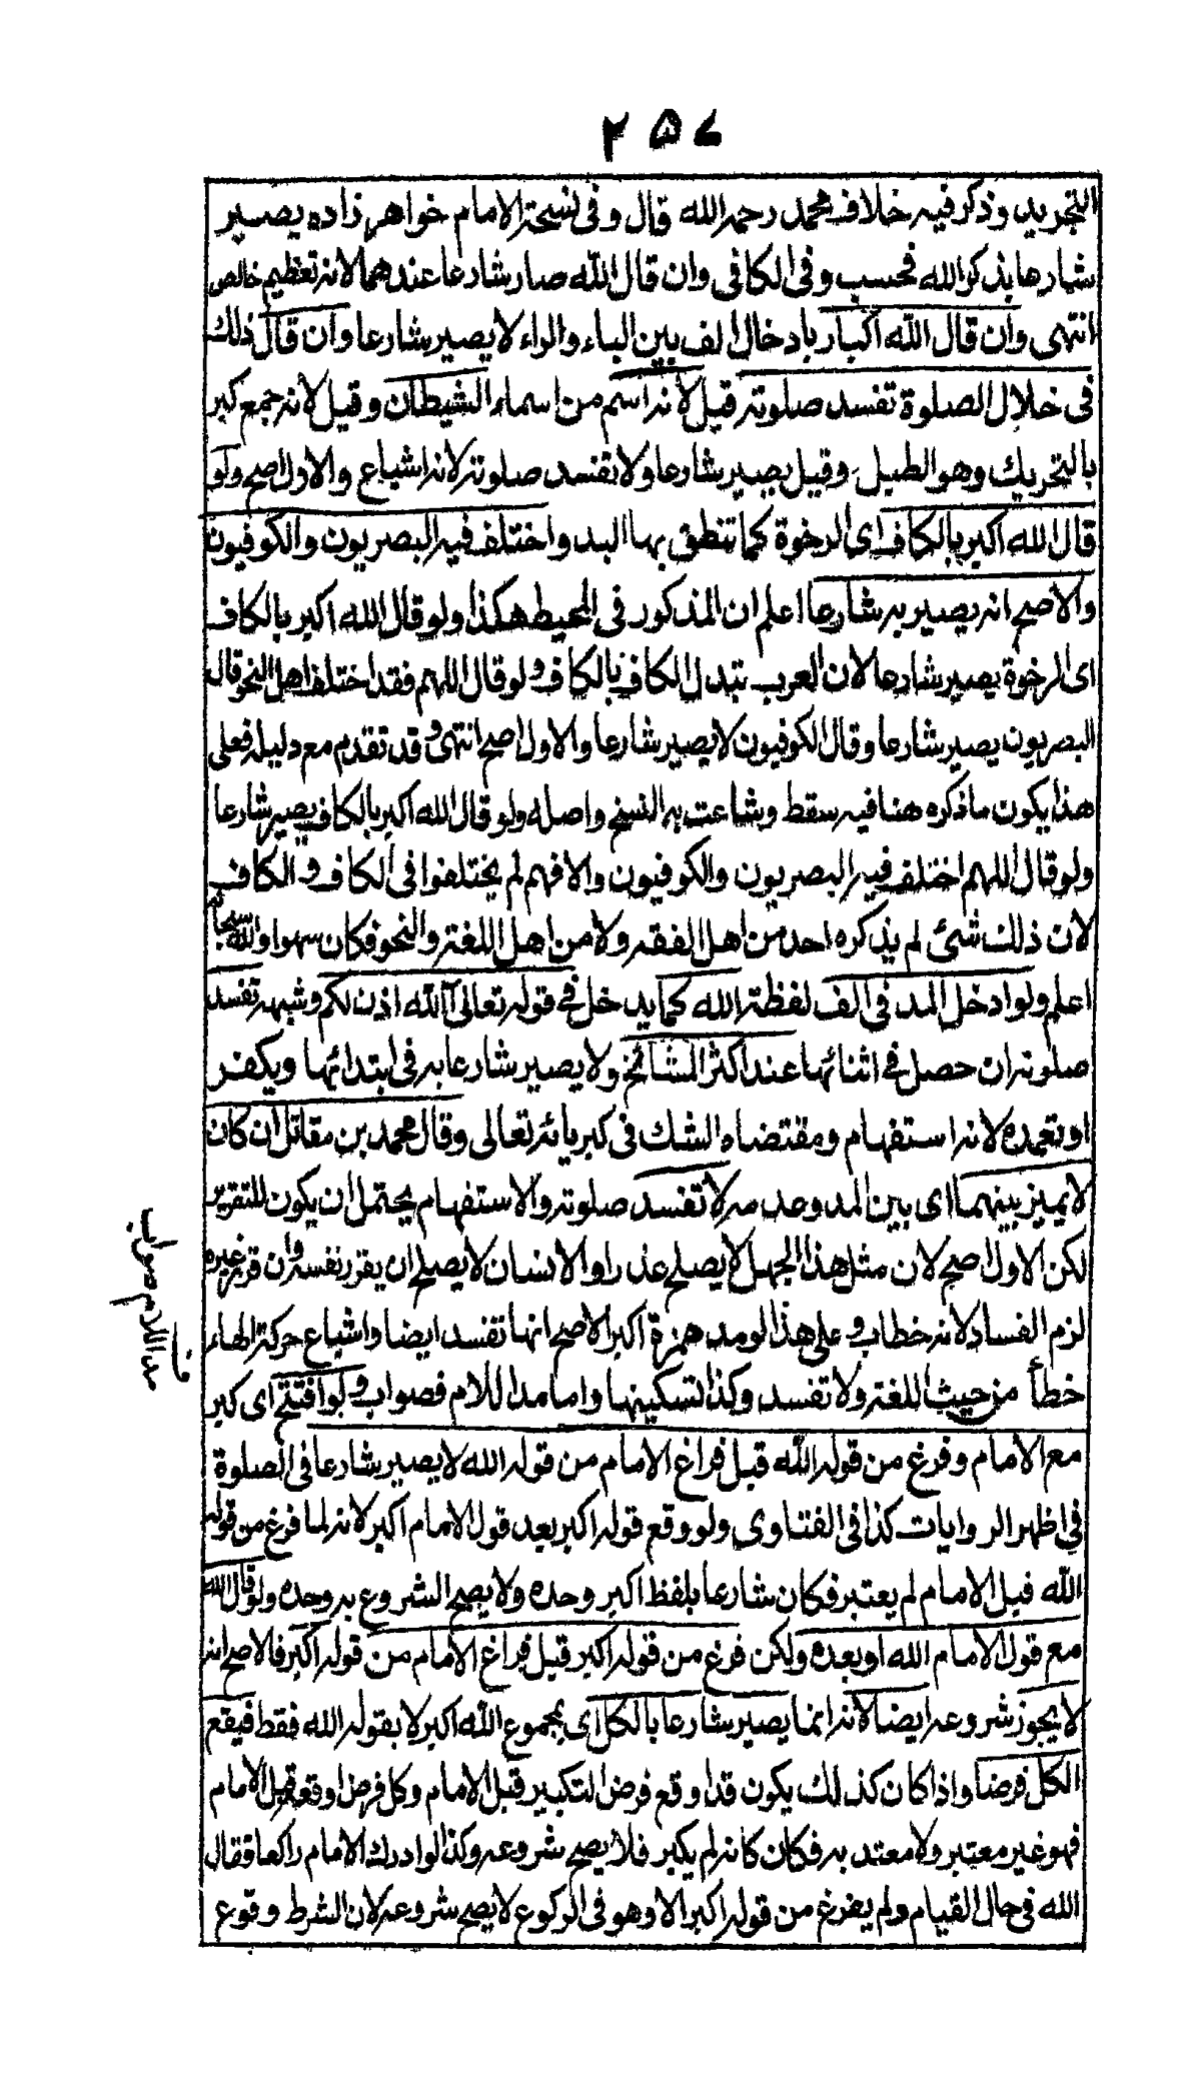 ٢٥٧
التجريد وذكر فيه خلاف محمد رحمه الله قال وفى نسخة الامام خواهر زاده يصير
شارعا بذكر الله فحسب وفى الكافى وان قال الله صار شارعا عندهما لانه تعظيم خالص
انتهى وان قال الله اكبار بادخال الف بين الباء والراء لا يصير شارعا وان قال ذلك
فى خلال الصلوة تفسد صلوته قيل لانه اسم من اسماء الشيطان وقيل لانه جمع كبر
بالتحريك وهو الطبل وقيل يصير شارعا ولا تفسد صلوته لانه اشباع والاول اصح ولو
قال الله اكبر بالكاف اى الرخوة كما تنطق بها البد واختلف فيه البصريون والكوفيون
والاصح انه يصير به شارعا اعلم ان المذكور فى المحيط هكذا ولو قال الله اكبر بالكاف
اى الرخوة يصير شارعا لان العرب تبدل الكاف بالكاف ولو قال اللهم فقد اختلف اهل النحو قال
البصريون يصير شارعا وقال الكوفيون لا يصير شارعا والاول اصح انتهى وقد تقدم مع دليله فعلى
هذا يكون ما ذكره هنا فيه سقط وشاعت به النسخ واصله ولو قال الله اكبر بالكاف يصير شارعا
ولو قال اللهم اختلف فيه البصريون والكوفيون والا فهم لم يختلفوا فى الكاف و الكاف
لان ذلك شئ لم يذكره احد من اهل الفقه ولا من اهل اللغة والنحو فكان سهوا والله سبحانه
اعلم ولو ادخل المد فى الف لفظة الله كما يدخل فى قوله تعالى آلله اذن لكم وشبهه تفسد
صلوته ان حصل فى اثنائها عند اكثر المشائخ ولا يصير شارعا به فى ابتدائها ويكفر
او تعمده لانه استفهام ومقتضاه الشك فى كبريائه تعالى وقال محمد بن مقاتل ان كان
لا يميز بينهما اى بين المد وعدمه لا تفسد صلوته والاستفهام يحتمل ان يكون للتقرير
لكن الاول اصح لان مثل هذا الجهل لا يصلح عذرا والانسان لا يصلح ان يقرر نفسه وان قرر غيره
لزم الفساد لانه خطاب وعلى هذا لو مد همزة اكبر الاصح انها تفسد ايضا واشباع حركة الهاء
خطأ من حيث اللغة ولا تفسد وكذا تسكينها واما مد اللام فصواب ولو افتتح اى كبر
مع الامام وفرغ من قوله الله قبل فراغ الامام من قوله الله لا يصير شارعا فى الصلوة
فى اظهر الروايات كذا فى الفتاوى ولو وقع قوله اكبر بعد قول الامام اكبر لانه لما فرغ من قوله
الله قبل الامام لم يعتبر فكان شارعا بلفظ اكبر وحده ولا يصح الشروع به وحده ولو قال الله
مع قول الامام الله او بعده ولكن فرغ من قوله اكبر قبل فراغ الامام من قوله اكبر فالاصح انه
لا يجوز شروعه ايضا لانه انما يصير شارعا بالكل اى بمجموع الله اكبر لا بقوله الله فقط فيقع
الكل فرضا واذا كان كذلك يكون قد اوقع فرض التكبير قبل الامام وكل فرض اوقعه قبل الامام
فهو غير معتبر ولا معتد به فكان كانه لم يكبر فلا يصح شروعه وكذا لو ادرك الامام راكعا فقال
الله فى حال القيام ولم يفرغ من قوله اكبر الا وهو فى الركوع لا يصح شروعه لان الشرط وقوع
ف
مد اللام صواب